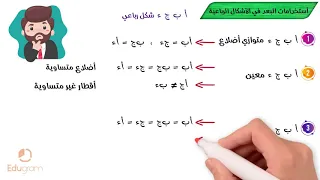 استخدامات البعد في الأشكال الرباعية
أ ب ج ء شكل رباعي
1 أ ب ج ء متوازي أضلاع
أب = جء ، بج = أء
2 أ ب ج ء معين
أب = بج = جء = أء
أضلاع متساوية
أج ≠ بء
أقطار غير متساوية
3 أ ب ج ء
أب = بج = جء = أء
Edugram